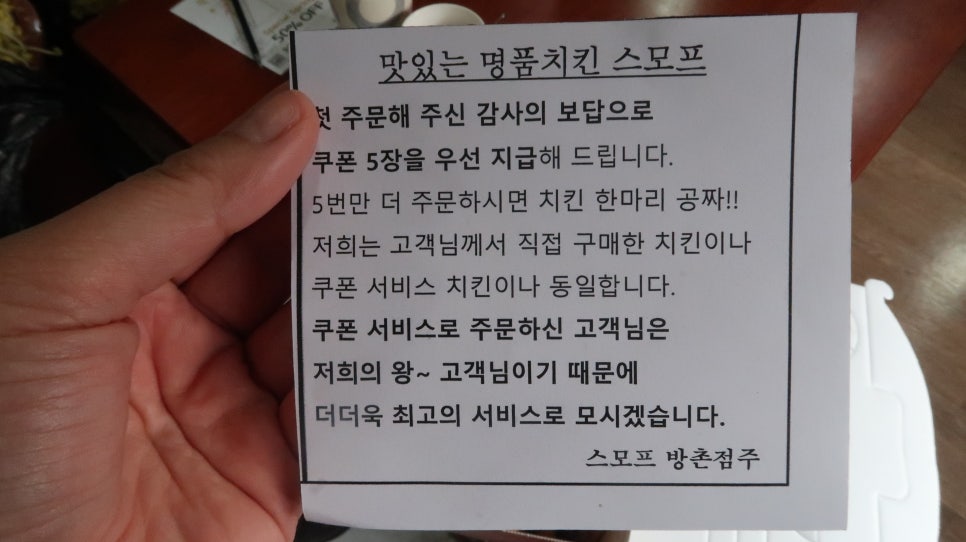 50% OFF
맛있는 명품치킨 스모프
첫 주문해 주신 감사의 보답으로
쿠폰 5장을 우선 지급해 드립니다.
5번만 더 주문하시면 치킨 한마리 공짜!!
저희는 고객님께서 직접 구매한 치킨이나
쿠폰 서비스 치킨이나 동일합니다.
쿠폰 서비스로 주문하신 고객님은
저희의 왕~ 고객님이기 때문에
더더욱 최고의 서비스로 모시겠습니다.
스모프 방촌점주